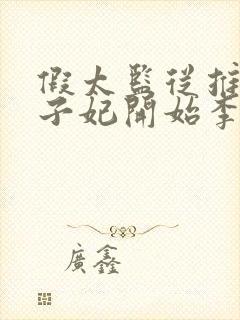 假太監從推
子妃開始李
廣鑫